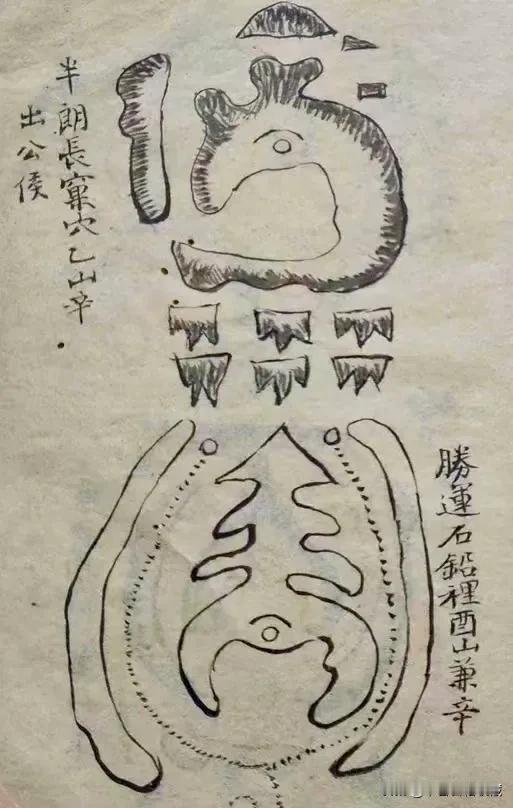 半朗長窠穴乙山辛
出公侯
勝蓮石鉛裡酉山兼辛